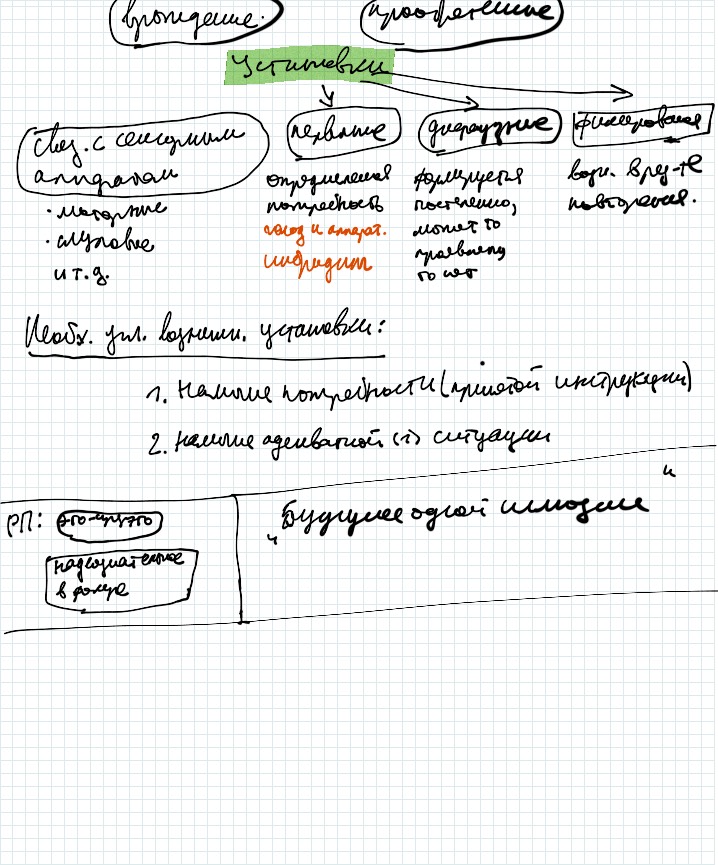 врожденные.
приобретенные
Установки
связ. с сенсорным
аппаратом
• моторные
• слуховые
и т.д.
первичные
определенная
потребность
голод и аппарат.
диффузные
формируется
постепенно,
может то
проявляться
то нет
фиксированная
возн. в рез-те
повторения.
Необх. усл. возникн. установки:
1. Наличие потребности (принятой инструкции)
2. Наличие адекватной (1) ситуации
РП:
надсознательное
"Будущее одной иллюзии"